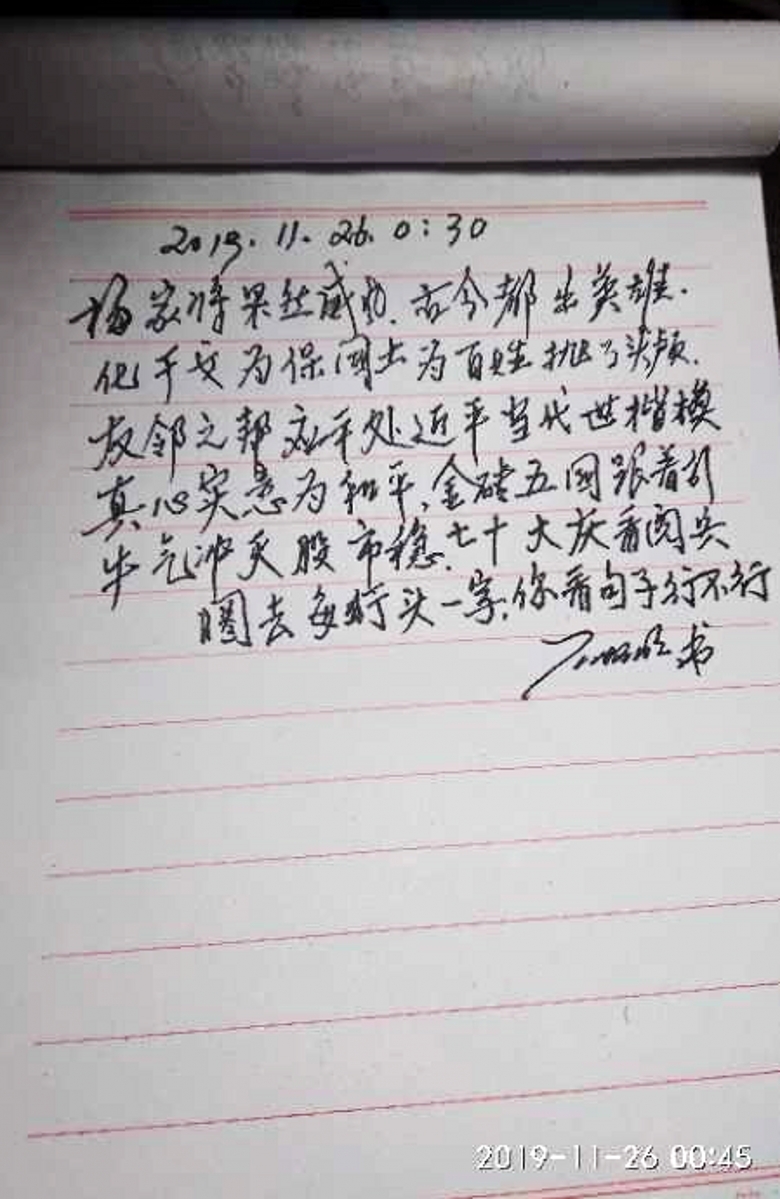 2019.11.26.0:30
杨家将果然威力.古今都出英雄.
化干戈为保国土为百姓抛了头颅.
友邻之邦应平处近平当代世楷模
真心实意为和平,金砖五国跟着引
牛气冲天股市稳.七十大庆看阅兵
圈去每行头一字.你看句子行不行
书
2019-11-26 00:45